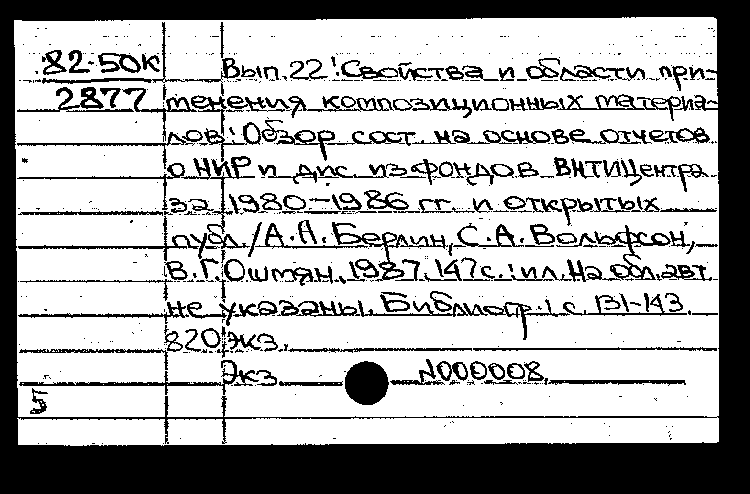 82-50К
2877
Вып. 22: Свойства и области при-
менения композиционных материа-
лов: Обзор сост. на основе отчетов
о НИР и дис. из фондов ВНТИЦентра
за 1980-1986 гг. и открытых
публ./А.А. Берлин, С.А. Вольфсон,
В.Г. Ошмян. 1987. 147 с.: ил. На обл. авт.
не указаны. Библиогр.: с. 131-143.
820 экз.
Экз. N000008